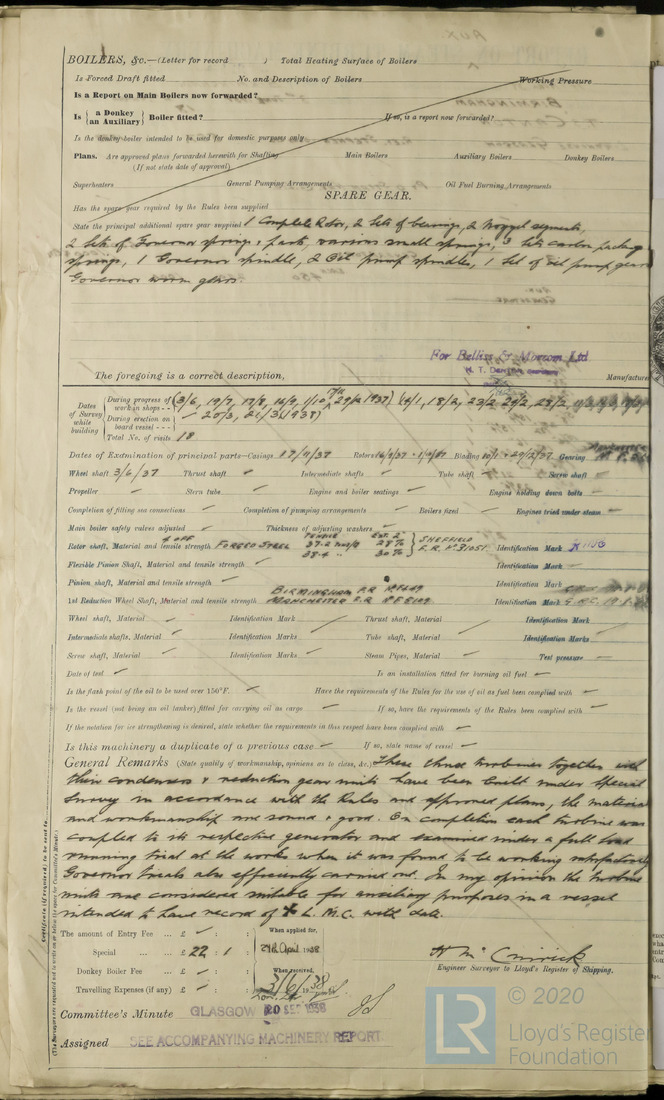 BOILERS, &c.—(Letter for record ) Total Heating Surface of Boilers
Is Forced Draft fitted No. and Description of Boilers Working Pressure
Is a Report on Main Boilers now forwarded?
Is { a Donkey / an Auxiliary } Boiler fitted? If so, is a report now forwarded?
Is the donkey boiler intended to be used for domestic purposes only
Plans. Are approved plans forwarded herewith for Shafting Main Boilers Auxiliary Boilers Donkey Boilers
(If not state date of approval)
Superheaters General Pumping Arrangements Oil Fuel Burning Arrangements
SPARE GEAR.
Has the spare gear required by the Rules been supplied
State the principal additional spare gear supplied 1 Complete Rotor, 2 sets of bearings, 2 Nozzle segments,
2 sets of Governor springs & parts, various small springs, 3 sets carbon packing
springs, 1 Governor spindle, 2 Oil pump spindles, 1 set of oil pump gears
Governor worm gears
For Belliss & Morcom Ltd.
The foregoing is a correct description, Manufacturer
Dates of Survey while building
During progress of work in shops - - (3/6, 19/7, 17/8, 16/9, 1/10, 29/12 1937)
During erection on board vessel - - - 20/3, 21/3 (1938)
Total No. of visits 18
Dates of Examination of principal parts—Casings 17/9/37 Rotors Blading Gearing
Wheel shaft 3/6/37 Thrust shaft Intermediate shafts Tube shaft Screw shaft
Propeller Stern tube Engine and boiler seatings Engine holding down bolts
Completion of fitting sea connections Completion of pumping arrangements Boilers fixed Engines tried under steam
Main boiler safety valves adjusted Thickness of adjusting washers
Rotor shaft, Material and tensile strength 4 OFF FORGED STEEL 37.2 38.4 28% 30% SHEFFIELD Identification Mark
Flexible Pinion Shaft, Material and tensile strength Identification Mark
Pinion shaft, Material and tensile strength Identification Mark
1st Reduction Wheel Shaft, Material and tensile strength BIRMINGHAM MANCHESTER Identification Mark
Wheel shaft, Material Identification Mark Thrust shaft, Material Identification Mark
Intermediate shafts, Material Identification Marks Tube shaft, Material Identification Marks
Screw shaft, Material Identification Marks Steam Pipes, Material Test pressure
Date of test Is an installation fitted for burning oil fuel
Is the flash point of the oil to be used over 150°F. Have the requirements of the Rules for the use of oil as fuel been complied with
Is the vessel (not being an oil tanker) fitted for carrying oil as cargo If so, have the requirements of the Rules been complied with
If the notation for ice strengthening is desired, state whether the requirements in this respect have been complied with
Is this machinery a duplicate of a previous case If so, state name of vessel
General Remarks (State quality of workmanship, opinions as to class, &c.) These three turbines together with
their condensers & reduction gear units have been built under Special
Survey in accordance with the Rules and approved plans, the material
and workmanship are sound & good. On completion each turbine was
coupled to its respective generator and examined under a full load
running trial at the works when it was found to be working satisfactorily
Governor trials also efficiently carried out. In my opinion the turbine
units are considered suitable for auxiliary purposes in a vessel
intended to have record of L.M.C. with date.
The amount of Entry Fee ... £ : : When applied for,
Special ... £ 22 : 1 : 29th April 1938
Donkey Boiler Fee ... £ : : When received,
Travelling Expenses (if any) £ : : 3/6/1938
Engineer Surveyor to Lloyd's Register of Shipping.
Committee's Minute GLASGOW 20 SEP 1938
Assigned SEE ACCOMPANYING MACHINERY REPORT.
(The Surveyors are requested not to write on or below the space for Committee's Minute.)
Certificate (if required) to be sent to
LR © 2020
Lloyd's Register
Foundation